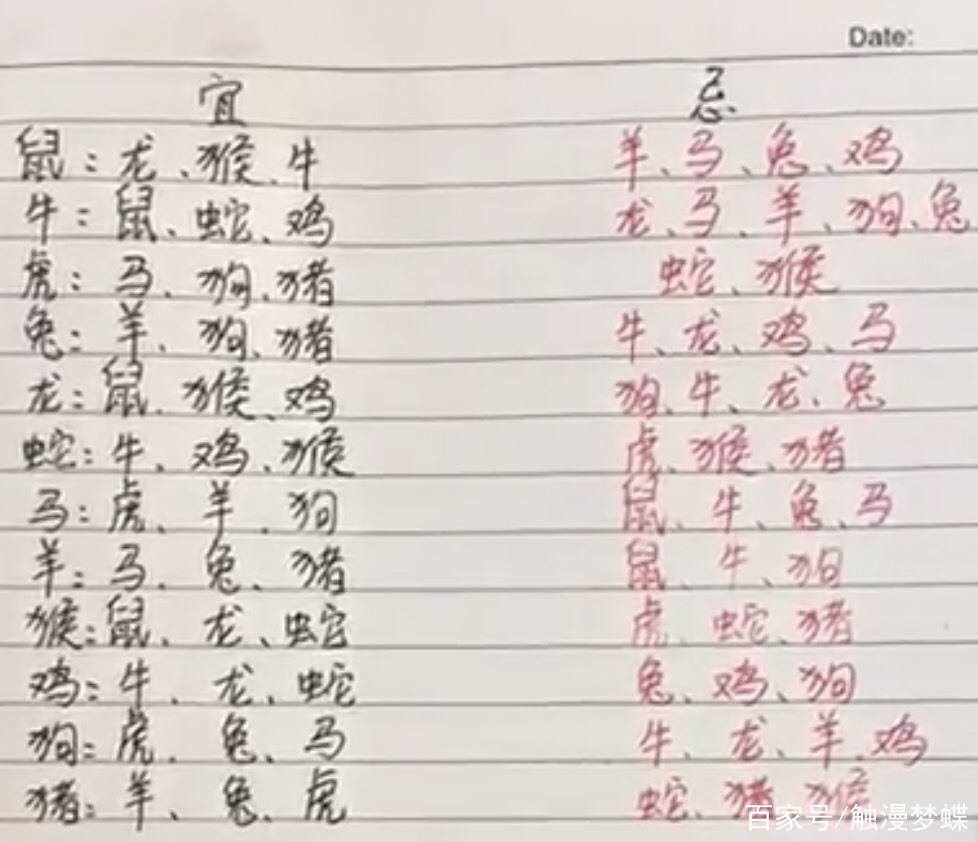 Date:
宜 忌
鼠：龙、猴、牛 羊、马、兔、鸡
牛：鼠、蛇、鸡 龙、马、羊、狗、兔
虎：马、狗、猪 蛇、猴
兔：羊、狗、猪 牛、龙、鸡、马
龙：鼠、猴、鸡 狗、牛、龙、兔
蛇：牛、鸡、猴 虎、猴、猪
马：虎、羊、狗 鼠、牛、兔、马
羊：马、兔、猪 鼠、牛、狗
猴：鼠、龙、蛇 虎、蛇、猪
鸡：牛、龙、蛇 兔、鸡、狗
狗：虎、兔、马 牛、龙、羊、鸡
猪：羊、兔、虎 蛇、猪、猴
百家号/触漫梦蝶